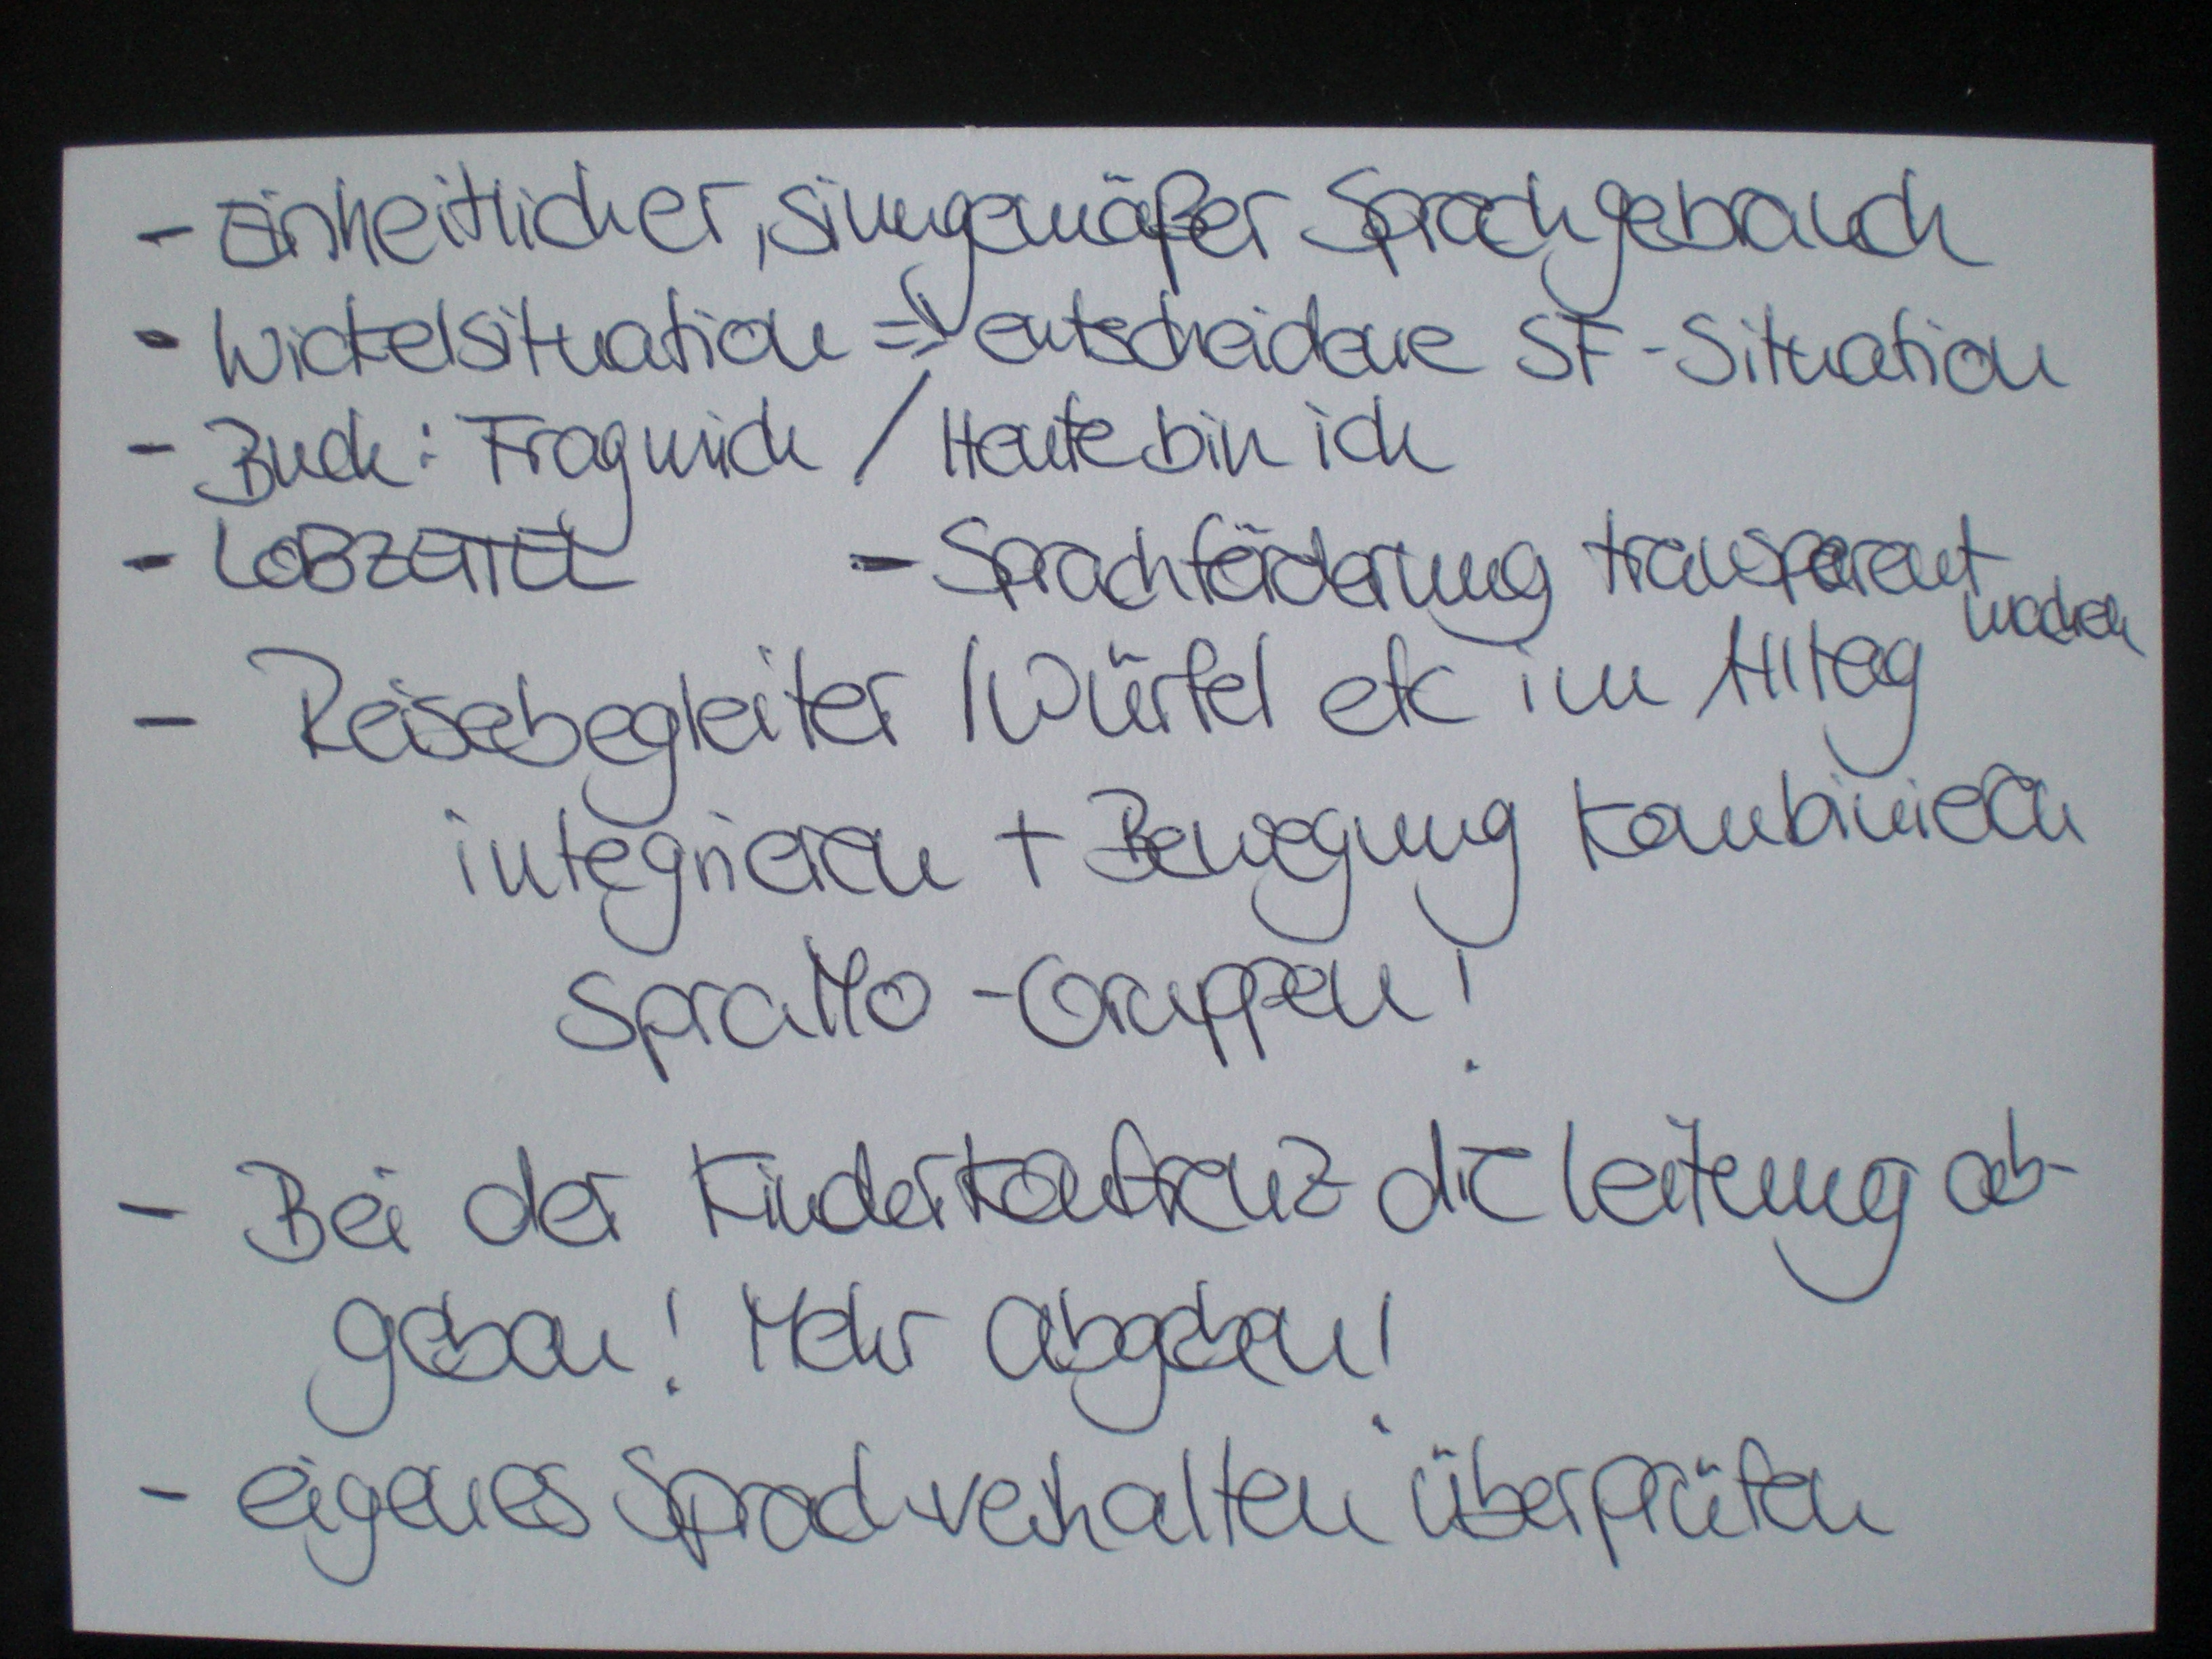 - Einheitlicher, sinngemäßer Sprachgebrauch
- Wickelsituation => entscheidene SF-Situation
- Buch: Frag mich / Heute bin ich
- LOBZETTEL - Sprachförderung transparent machen
- Reisebegleiter / Würfel etc im Alltag
integrieren + Bewegung kombinieren
SpraMo-Gruppen!
- Bei der Kinderkonfrenz die Leitung ab-
geben! Mehr abgeben!
- eigenes Sprachverhalten überprüfen